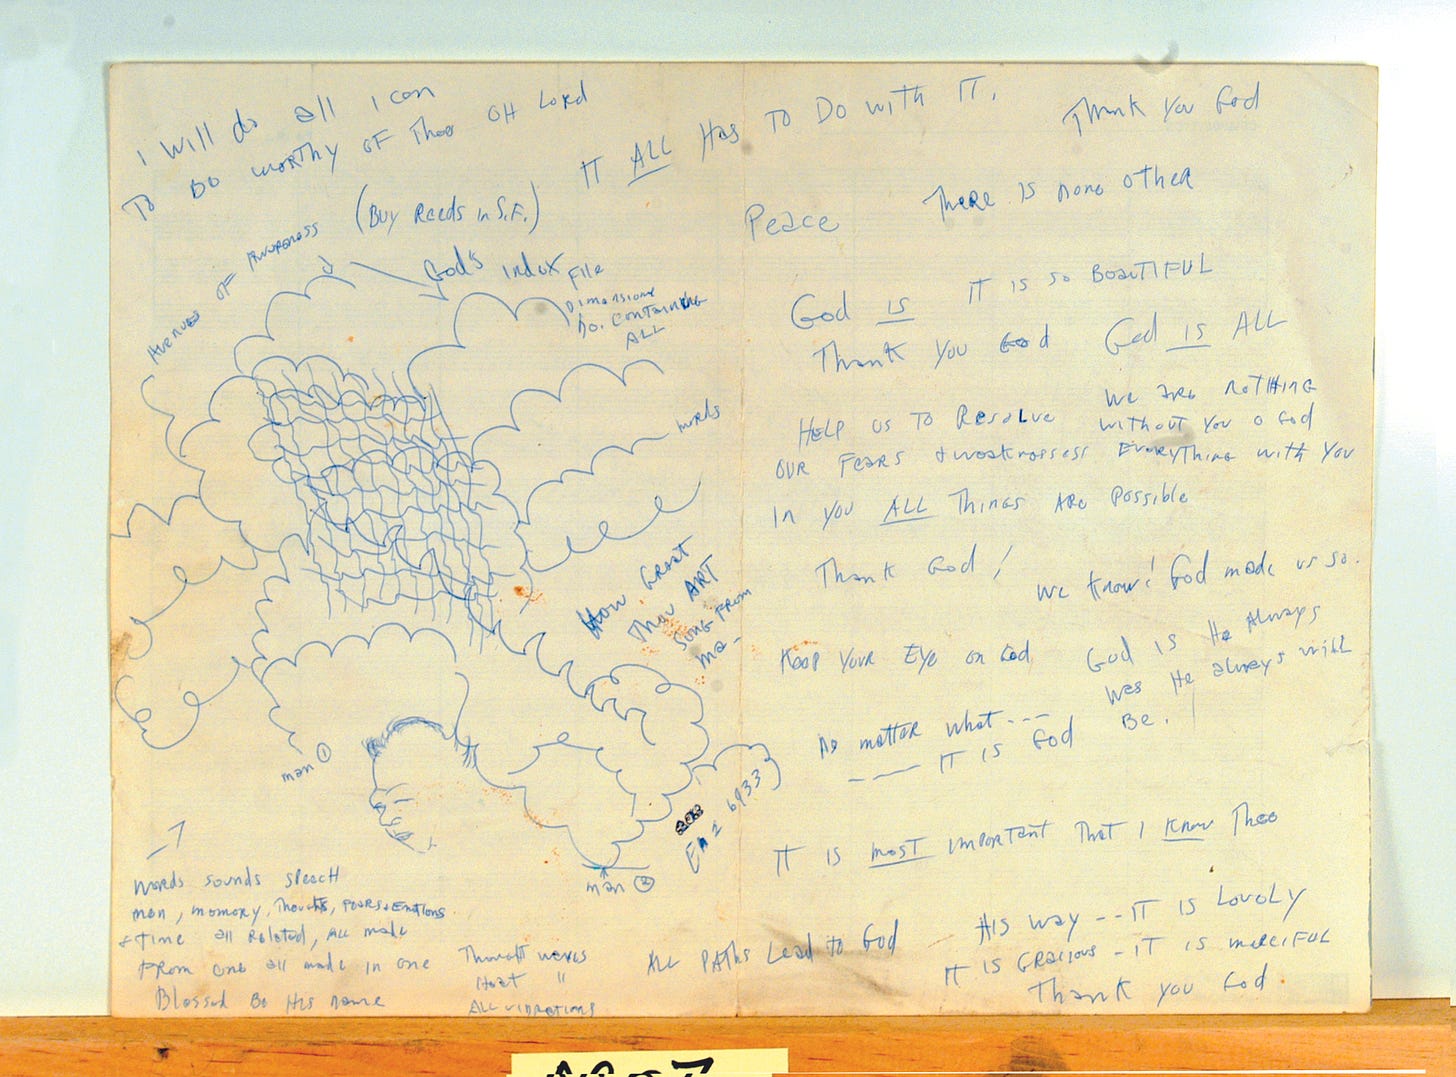 I will do all I can
To be worthy of Thee OH Lord
IT ALL Has To Do with IT.
Thank You God
(Buy Reeds in S.F.)
Peace
There is none other
Avenues of Awareness
God's index File
Dimensions
No. Containing
ALL
words
God is IT is so Beautiful
Thank You God God is ALL
Help us To Resolve
our Fears & weaknesses
We are nothing
without You o God
Everything with You
In you ALL Things Are Possible
Thank God!
We Know! God made us so.
How Great
Thou ART
song From
me-
Keep Your Eye on God
God is He Always
was He always will
Be.
No matter what---
---- IT is God
man ①
man ②
EN 2 6933
IT is most important That I Know Thee
words sounds speech
men, memory, Thoughts, Fears & Emotions
& Time all Related, All made
From one all made in one
Blessed Be His name
Thought waves
Heat "
ALL vibrations
ALL PATHs Lead to God
His way -- IT is Lovely
IT is Gracious - IT is merciful
Thank you God